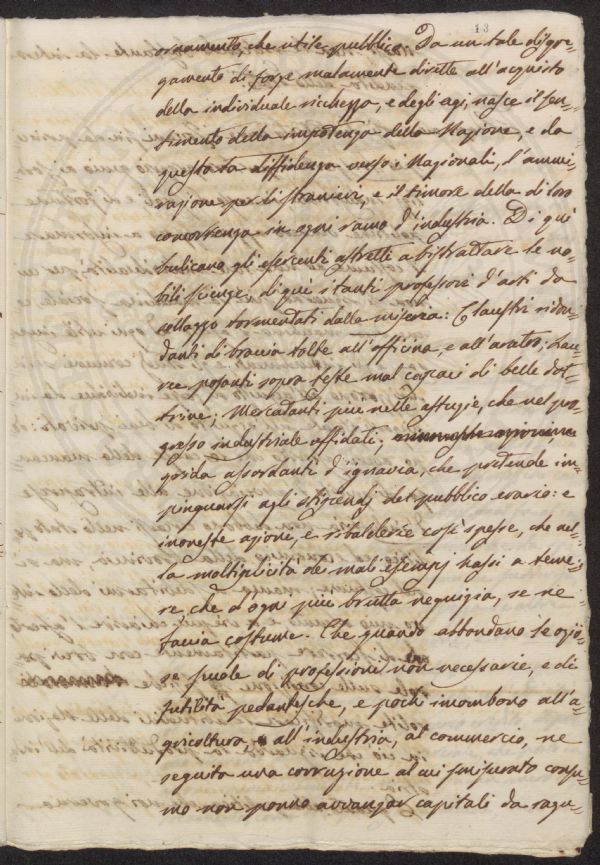 13
ornamento, che utile pubblico. Da un tale disgre-
gamento di forze malamente dirette all'acquisto
della individuale ricchezza, e degli agi, nasce il sen-
timento della impotenza della Nazione, e da
questo la diffidenza verso i Nazionali, l'ammi-
razione per li stranieri, e il timore della di loro
concorrenza in ogni ramo d'industria. Di quì
bulicano gli esercenti astretti a bistrattare le no-
bili scienze, di quì i tanti professori d'arti da
collazzo tormentati dalla miseria: Claustri ridon-
danti di braccia tolte all'officina, e all'aratro; Lau-
ree posanti sopra teste mal capaci di belle dot-
trine; Mercadanti più nelle astuzie, che nel pro-
gresso industriale affidati;
gorida assordanti d'ignavia, che pretende im-
pinguarsi agli stipendj del pubblico erario: e
inoneste azioni, e ribalderie così spesse, che nel-
la moltiplicità dei mali esempj hassi a teme-
re, che d'ogni più brutta nequizia, se ne
faccia costume. Che quando abbondano le ozio-
se scuole di professioni non necessarie, e di
futilità pedantesche, e pochi incombono all'a-
gricoltura, all'industria, al commercio, ne
seguita una corruzione al cui smisurato consu-
mo non ponno avvanzar capitali da ragu-